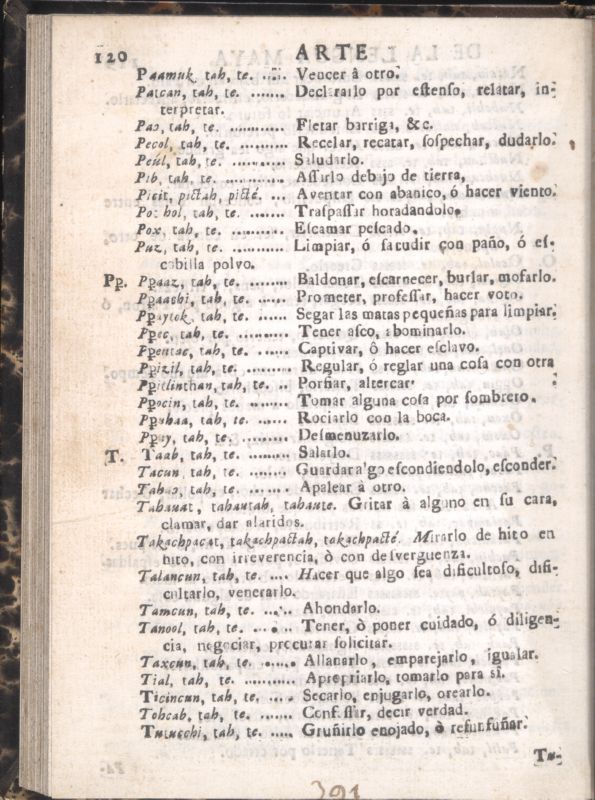 120 ARTE
Paamuk, tah, te. ..... Vencer à otro.
Patcan, tah, te. ....... Declararlo por estenso, relatar, in-
terpretar.
Paɔ, tah, te. ........... Fletar barriga, &c.
Pecol, tah, te. ......... Recelar, recatar, sospechar, dudarlo.
Peùl, tah, te. .......... Saludarlo.
Pib, tah, te. ........... Assirlo debajo de tierra,
Picit, pictah, picté. ... Aventar con abanico, ó hacer viento.
Pot hol, tah, te. ........ Traspassar horadandolo.
Pox, tah, te. ........... Escamar pescado.
Puz, tah, te. ........... Limpiar, ó sacudir con paño, ó es-
cobilla polvo.
Pp. Ppaaz, tah, te. ....... Baldonar, escarnecer, burlar, mofarlo.
Ppaachi, tah, te. ...... Prometer, professar, hacer voto.
Ppaytok, tah, te. ...... Segar las matas pequeñas para limpiar.
Ppec, tah, te. .......... Tener asco, abominarlo.
Ppentac, tah, te. ...... Captivar, ô hacer esclavo.
Ppizil, tah, te. ........ Regular, ó reglar una cosa con otra
Ppiclinthan, tah, te. .. Porfiar, altercar.
Ppocin, tah, te. ........ Tomar alguna cosa por sombrero.
Ppuhaa, tah, te. ....... Rociarlo con la boca.
Ppuy, tah, te. .......... Desmenuzarlo.
T. Taab, tah, te. ......... Salarlo.
Tacun, tah, te. ....... Guardar algo escondiendolo, esconder.
Tahaɔ, tah, te. ........ Apalear à otro.
Tahauat, tahautah, tahaute. Gritar à alguno en su cara,
clamar, dar alaridos.
Takachpacat, takachpactah, takachpacté. Mirarlo de hito en
hito, con irreverencia, ò con desverguenza.
Talancun, tah, te. .... Hacer que algo sea dificultoso, difi-
cultarlo, venerarlo.
Tamcun, tah, te. ..... Ahondarlo.
Tanool, tah, te. ...... Tener, ò poner cuidado, ó diligen-
cia, negociar, procurar solicitar.
Taxcun, tah, te. ...... Allanarlo, emparejarlo, igualar.
Tial, tah, te. .......... Apropriarlo, tomarlo para sì.
Ticincun, tah, te. ..... Secarlo, enjugarlo, orearlo.
Tohcab, tah, te. ....... Confessar, decir verdad.
Tuuchi, tah, te. ....... Gruñirlo enojado, ò refunfuñar.
Tu-
391